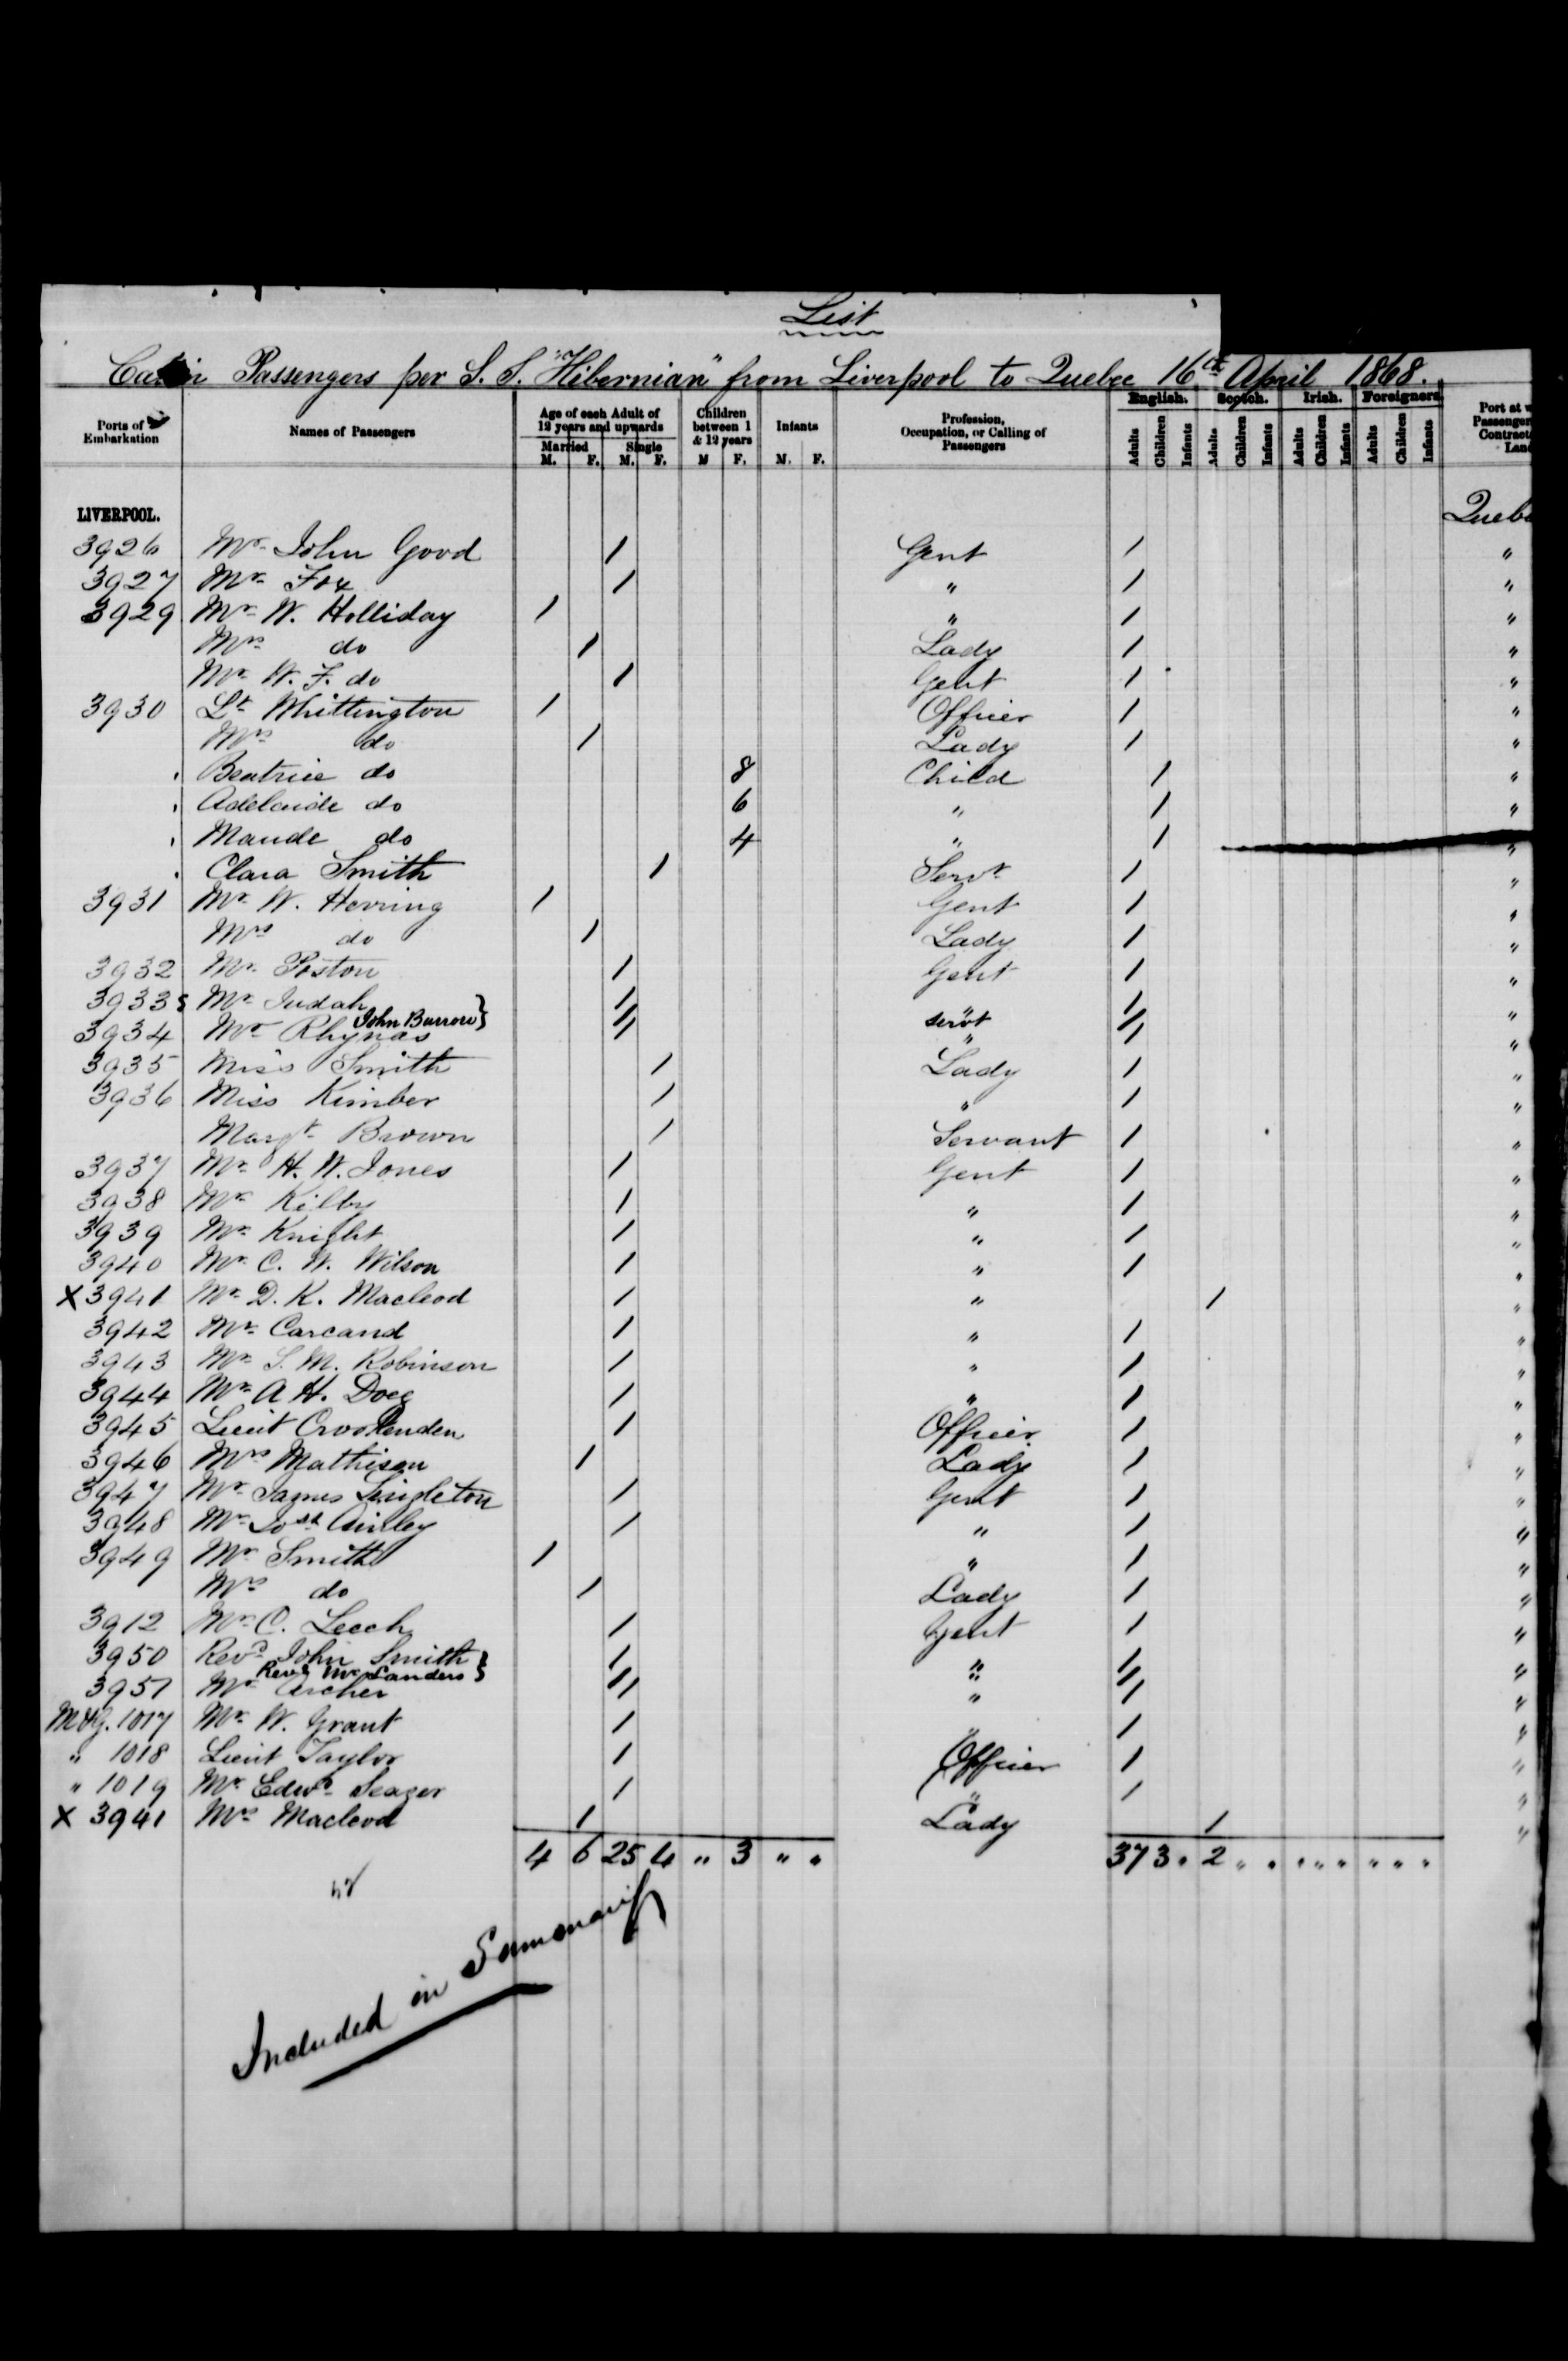 List
Cabin Passengers per S. S. "Hibernian" from Liverpool to Quebec 16th April 1868.
Ports of Embarkation | Names of Passengers | Age of each Adult of 12 years and upwards | Children between 1 & 12 years | Infants | Profession, Occupation, or Calling of Passengers | English. | Scotch. | Irish. | Foreigners
Married | Single
M. F. M. F. M F. M. F. Adults Children Infants Adults Children Infants Adults Children Infants Adults Children Infants
LIVERPOOL. Quebe
3926 Mr John Good 1 Gent 1 "
3927 Mr Fox 1 " 1 "
3929 Mr W. Holliday 1 " 1 "
Mrs do 1 Lady 1 "
Mr W. F. do 1 Gent 1 "
3930 Lt Whittington 1 Officer 1 "
Mrs do 1 Lady 1 "
Beatrice do 8 Child 1 "
Adelaide do 6 " 1 "
Maude do 4 " 1 "
Clara Smith 1 Servt 1 "
3931 Mr W. Herring 1 Gent 1 "
Mrs do 1 Lady 1 "
3932 Mr Poston 1 Gent 1 "
3933 Mr Judah 1 " 1 "
John Burrow } 1 servt 1
3934 Mr Rhynas 1 " 1 "
3935 Miss Smith 1 Lady 1 "
3936 Miss Kimber 1 " 1 "
Margt Brown 1 Servant 1 "
3937 Mr H. W. Jones 1 Gent 1 "
3938 Mr Kilby 1 " 1 "
3939 Mr Knight 1 " 1 "
3940 Mr C. W. Wilson 1 " 1 "
X 3941 Mr D. K. Macleod 1 " 1 "
3942 Mr Carcand 1 " 1 "
3943 Mr S. M. Robinson 1 " 1 "
3944 Mr A H. 1 " 1 "
3945 Lieut Crookenden 1 Officer 1 "
3946 Mrs Mathison 1 Lady 1 "
3947 Mr James Singleton 1 Gent 1 "
3948 Mr Josh Ainley 1 " 1 "
3949 Mr Smith 1 " 1 "
Mrs do 1 Lady 1 "
3912 Mr C. Leech 1 Gent 1 "
3950 Revd John Smith 1 " 1 "
Revd Mr Landers } 1 " 1
3951 Mr Archer 1 " 1 "
M&G. 1017 Mr W. Grant 1 " 1 "
" 1018 Lieut Taylor 1 Officer 1 "
" 1019 Mr Edwd Seager 1 " 1 "
X 3941 Mrs Macleod 1 Lady 1 "
4 6 25 4 " 3 " " 37 3 " 2 " " " " " " " "
42
Included in Summary